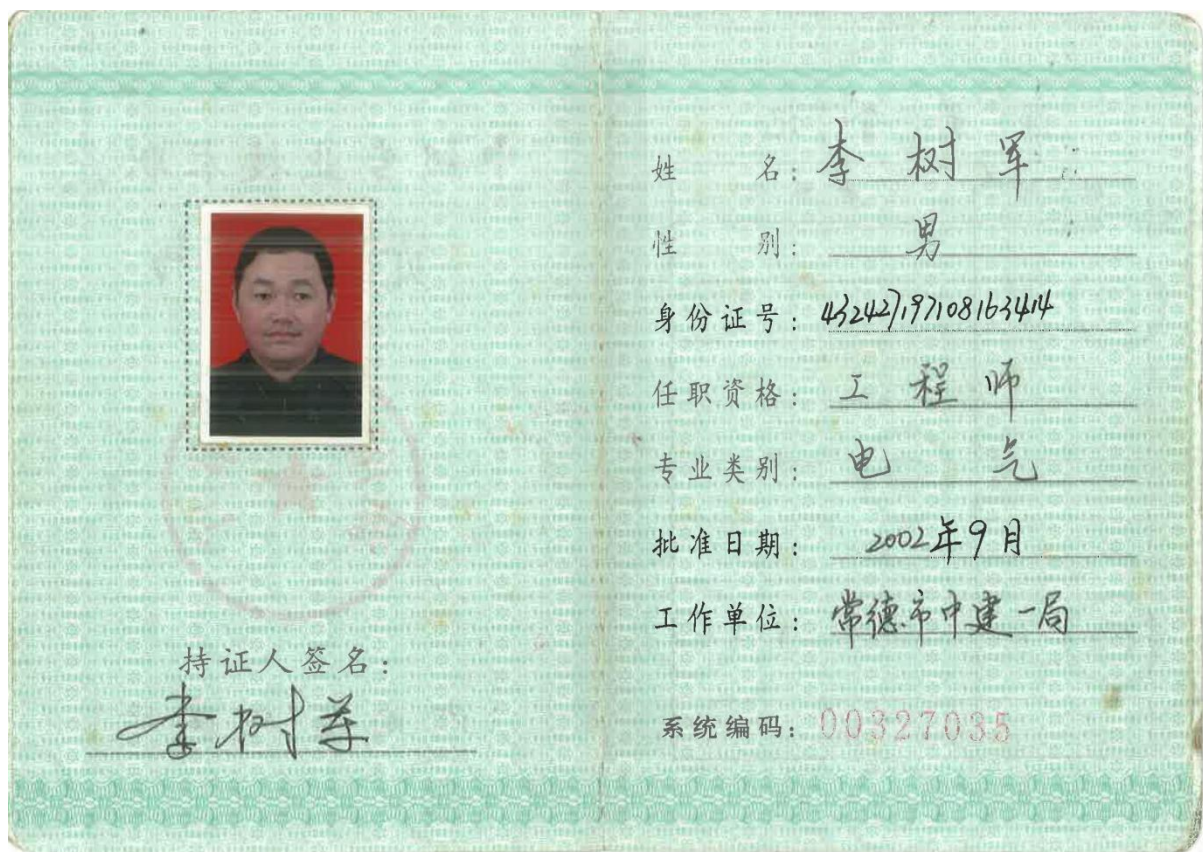 持证人签名:
李树军
姓 名: 李树军
性 别: 男
身份证号: 432427197108163414
任职资格: 工程师
专业类别: 电气
批准日期: 2002年9月
工作单位: 常德市中建一局
系统编码: 00327035